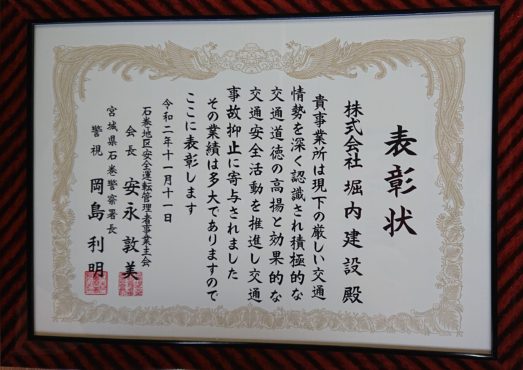 表彰状
株式会社 堀内建設 殿
貴事業所は現下の厳しい交通
情勢を深く認識され積極的な
交通道徳の高揚と効果的な
交通安全活動を推進し交通
事故抑止に寄与されました
その業績は多大でありますので
ここに表彰します
令和二年十一月十一日
石巻地区安全運転管理者事業主会
会長 安永敦美
宮城県石巻警察署長
警視 岡島利明